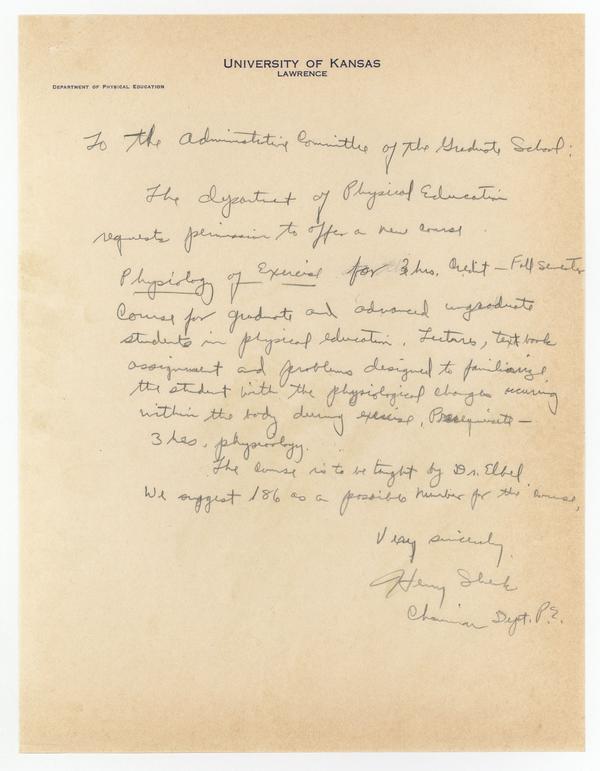 UNIVERSITY OF KANSAS
LAWRENCE
DEPARTMENT OF PHYSICAL EDUCATION
To the Administrative Committee of the Graduate School:
The department of Physical Education
requests permission to offer a new course
Physiology of Exercise for 3 hrs. Credit — Fall Semester
Course for graduate and advanced
students in physical education. Lectures, textbook
assignment and problems designed to familiarize
the student with the physiological changes
within the body during exercise. Prerequisite —
3 hrs. physiology.
The course is to be taught by Dr. Elbel.
We suggest 186 as a possible number for the course.
Very sincerely,
Henry
Chairman Dept. P.E.